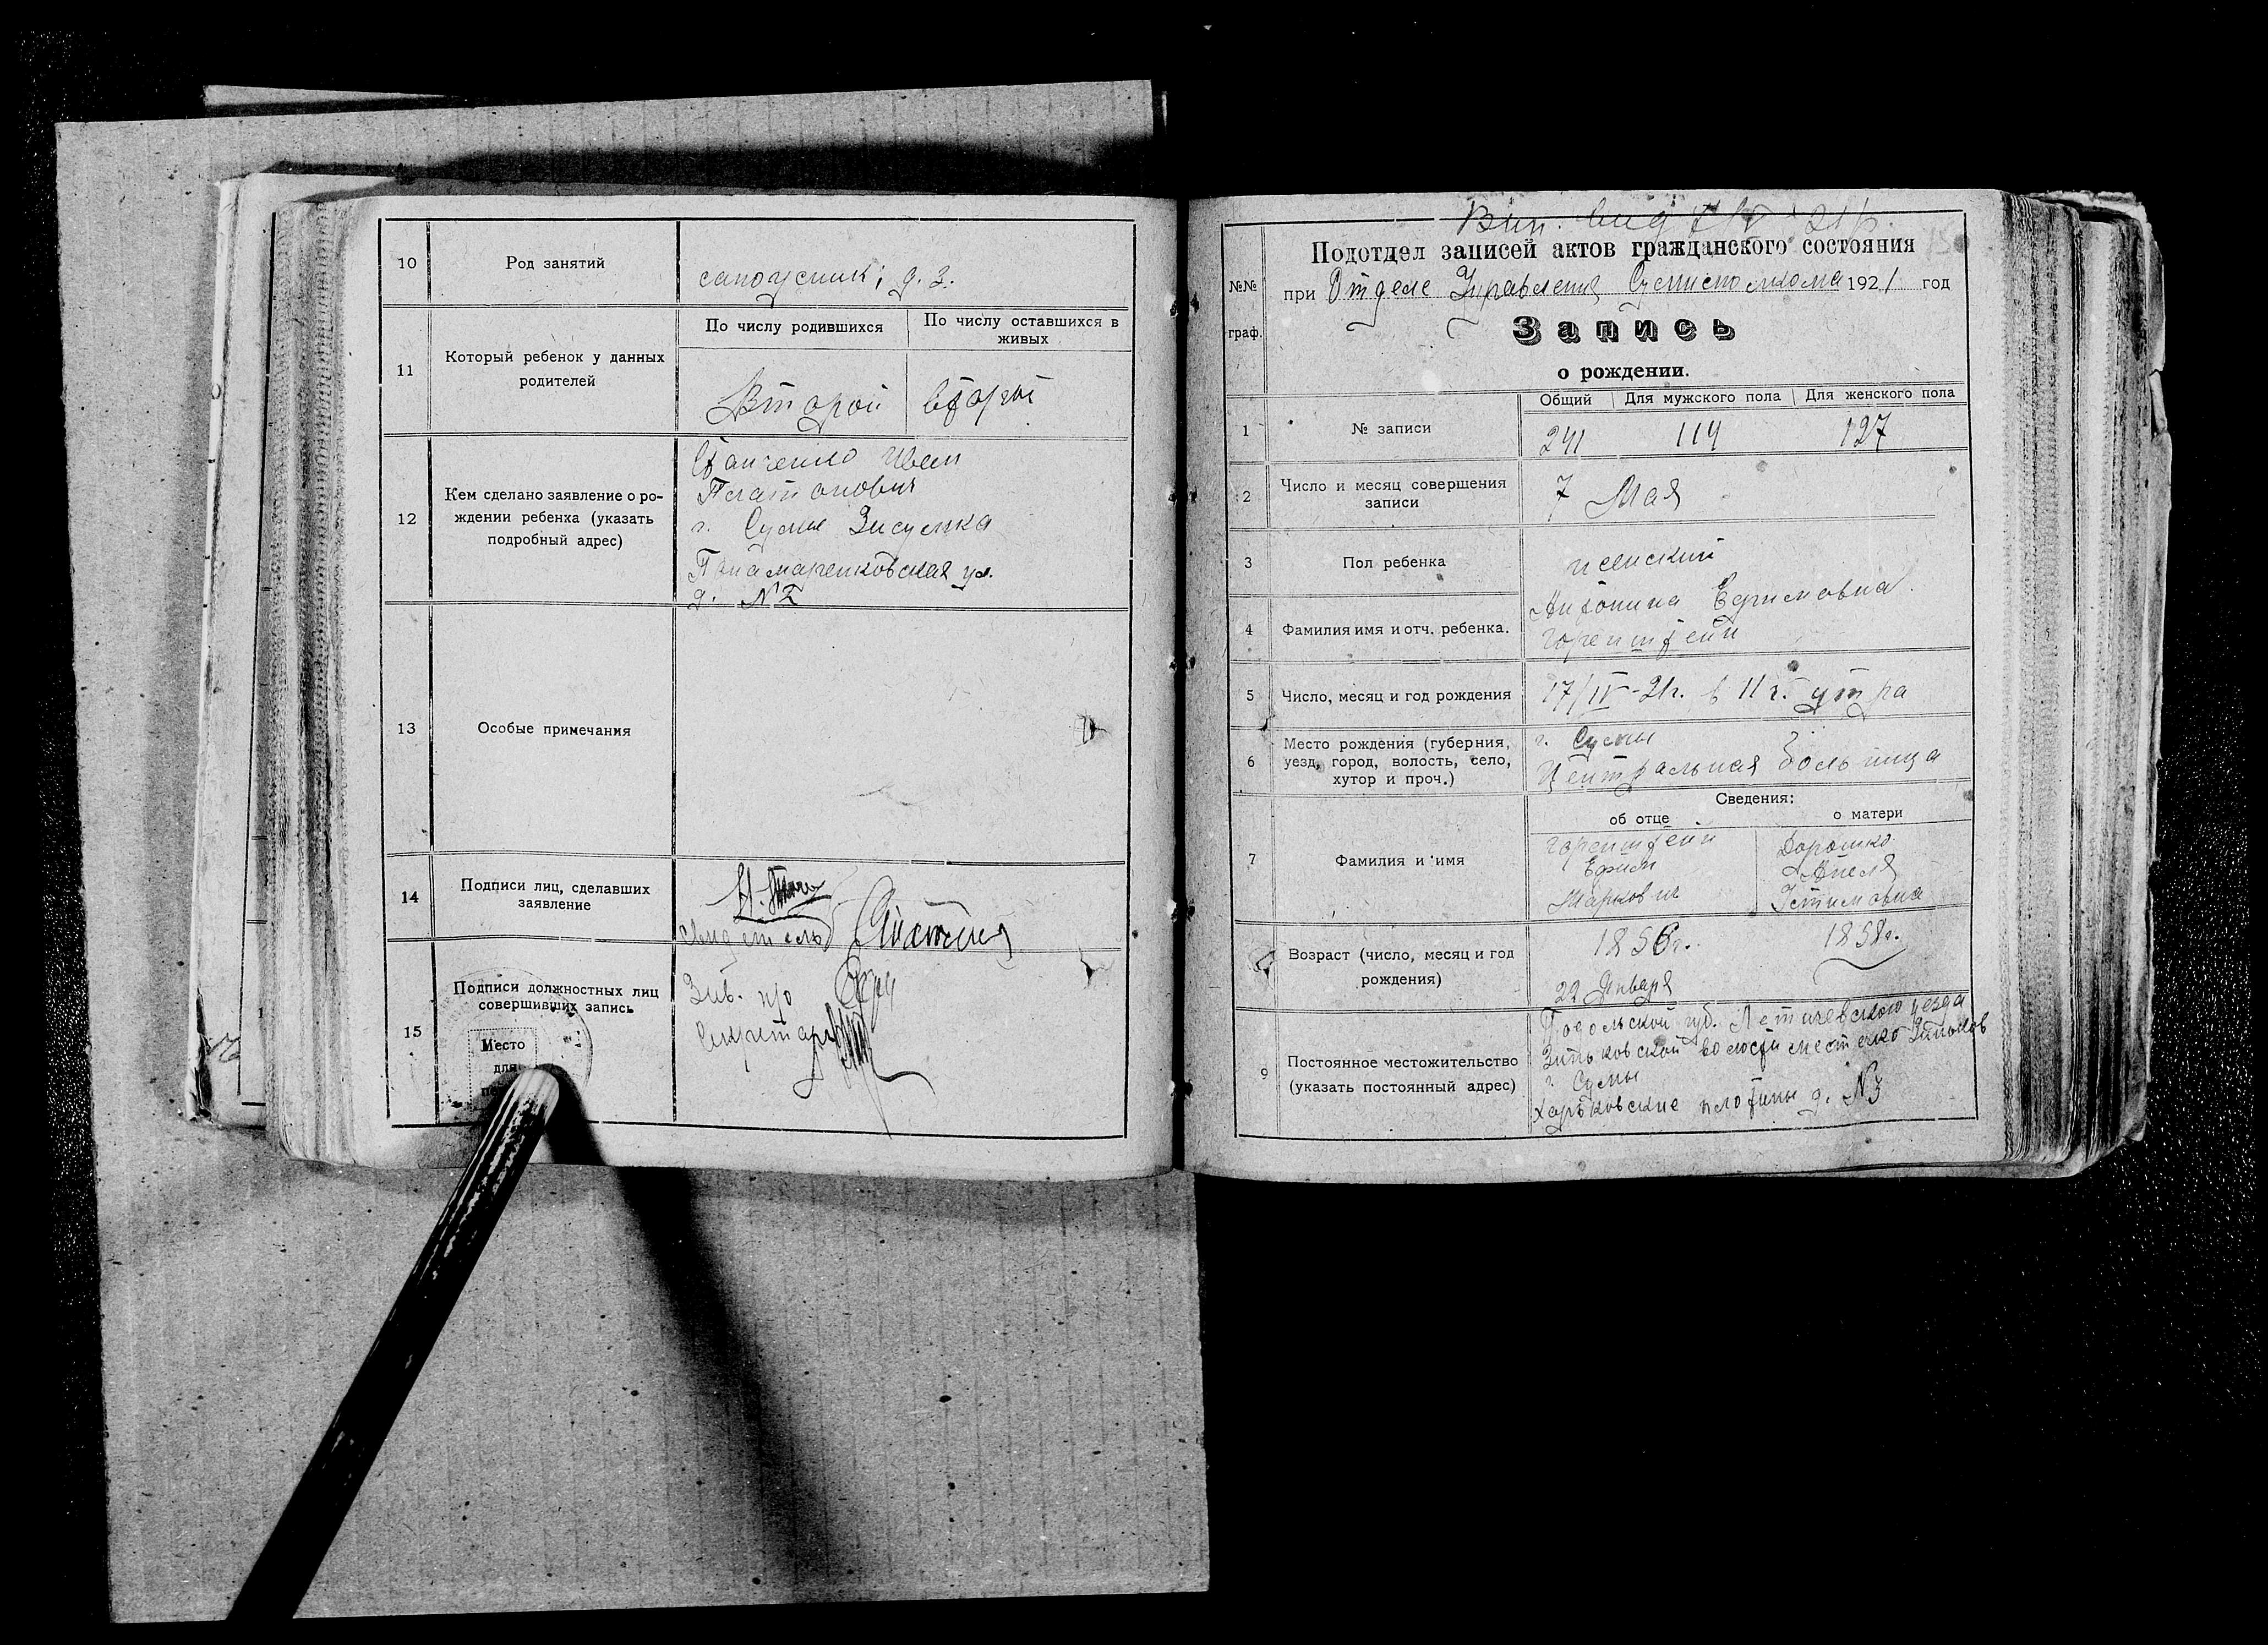 10
Род занятий
сапожник; д. з.
11
Который ребенок у данных
родителей
По числу родившихся
По числу оставшихся в
живых
Второй
второй
12
Кем сделано заявление о ро-
ждении ребенка (указать
подробный адрес)
Иван
Платонович
г. Сумы Засумка
ул.
д. №
13
Особые примечания
14
Подписи лиц, сделавших
заявление
свидетель
15
Подписи должностных лиц
совершивших запись
Место
для
Зав. п/о
Секретарь
№№
граф.
Подотдел записей актов гражданского состояния
при Отделе Управления Сумисполкома 1921 год
Запись
о рождении.
1
№ записи
Общий
Для мужского пола
Для женского пола
241
114
127
2
Число и месяц совершения
записи
7 Мая
3
Пол ребенка
женский
4
Фамилия имя и отч. ребенка.
Антонина Ефимовна
Горенштейн
5
Число, месяц и год рождения
17/IV-21г. в 11 ч. утра
6
Место рождения (губерния,
уезд, город, волость, село,
хутор и проч.)
г. Сумы
Центральная больница
Сведения:
об отце
о матери
7
Фамилия и имя
Горенштейн
Ефим
Маркович
Дорошко
Устимовна
Возраст (число, месяц и год
рождения)
29 Января
9
Постоянное местожительство
(указать постоянный адрес)
Подольской губ. Летичевского уезда
Зиньковской волости местечко Зиньков
г. Сумы
Харьковские плотины д. №3